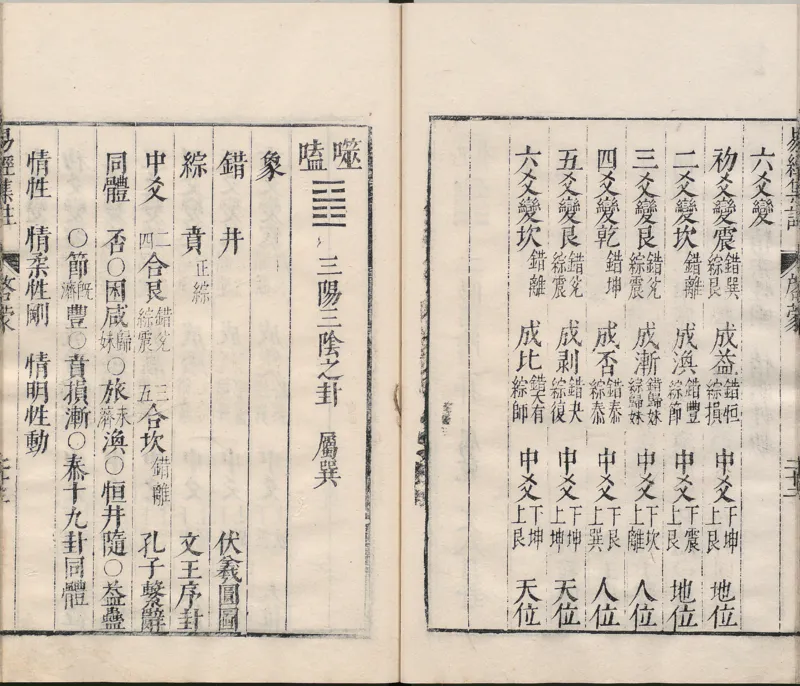 六爻變
初爻變震錯巽綜艮 成益錯恒綜損 中爻下坤上艮 地位
二爻變坎錯離 成渙錯豐綜節 中爻下震上艮 地位
三爻變艮錯兌綜震 成漸錯歸妹綜歸妹 中爻下坎上離 人位
四爻變乾錯坤 成否錯泰綜泰 中爻下艮上巽 人位
五爻變艮錯兌綜震 成剥錯夬綜復 中爻下坤上坤 天位
六爻變坎錯離 成比錯大有綜師 中爻下坤上艮 天位
易經集註 啓蒙 二十三
噬嗑 三陽三陰之卦 屬巽
象
錯井 伏羲圓圖
綜賁正綜 文王序卦
中爻二四合艮錯兌綜震 三五合坎錯離 孔子繫辭
同體 否〇困咸歸妹〇旅未濟渙〇恒井隨〇益蠱
〇節既濟豐〇賁損漸〇泰十九卦同體
情性 情柔性剛 情明性動
易經集註 啓蒙